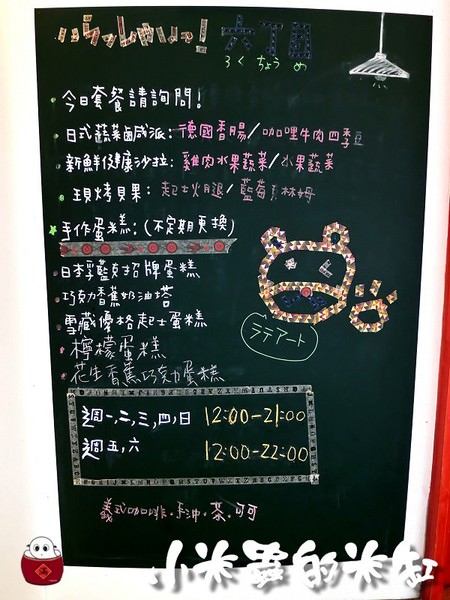 いらっしゃいませ! 六丁目
ろく ちょう め
今日套餐請詢問!
日式蔬菜鹹派:德國香腸/咖哩牛肉四季豆
新鮮健康沙拉:雞肉水果蔬菜/水果蔬菜
現烤貝果:起士火腿/藍莓蘭姆
手作蛋糕:(不定期更換)
日本李藍克招牌蛋糕
巧克力香蕉奶油塔
雪藏優格起士蛋糕
檸檬蛋糕
花生香蕉巧克力蛋糕
ラテアート
週一,二,三,四,日 12:00-21:00
週五,六 12:00-22:00
義式咖啡.手沖.茶.可可
小米蟲的米缸